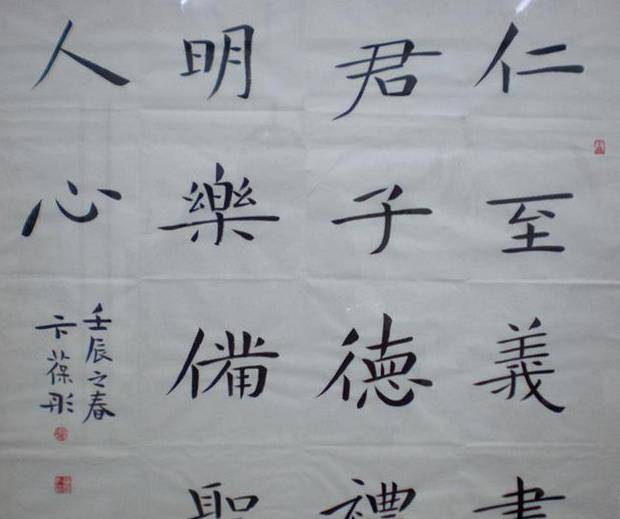 仁至義盡
君子德禮
明樂備聖
人心
壬辰之春
卞葆彤